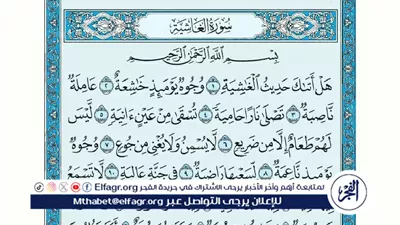 سُورَةُ الغَاشِيَةِ
بِسْمِ اللَّهِ الرَّحْمَٰنِ الرَّحِيمِ
هَلْ أَتَىٰكَ حَدِيثُ ٱلْغَٰشِيَةِ ١ وُجُوهٌ يَوْمَئِذٍ خَٰشِعَةٌ ٢ عَامِلَةٌ
نَّاصِبَةٌ ٣ تَصْلَىٰ نَارًا حَامِيَةً ٤ تُسْقَىٰ مِنْ عَيْنٍ ءَانِيَةٍ ٥ لَّيْسَ
لَهُمْ طَعَامٌ إِلَّا مِن ضَرِيعٍ ٦ لَّا يُسْمِنُ وَلَا يُغْنِي مِن جُوعٍ ٧ وُجُوهٌ
يَوْمَئِذٍ نَّاعِمَةٌ ٨ لِّسَعْيِهَا رَاضِيَةٌ ٩ فِي جَنَّةٍ عَالِيَةٍ ١٠ لَّا تَسْمَعُ
لمتابعة أهم وآخر الأخبار يرجى الاشتراك في جريدة الفجر Elfagr.org
للإعلان يرجى التواصل عبر Mthabet@elfagr.org
الفجر